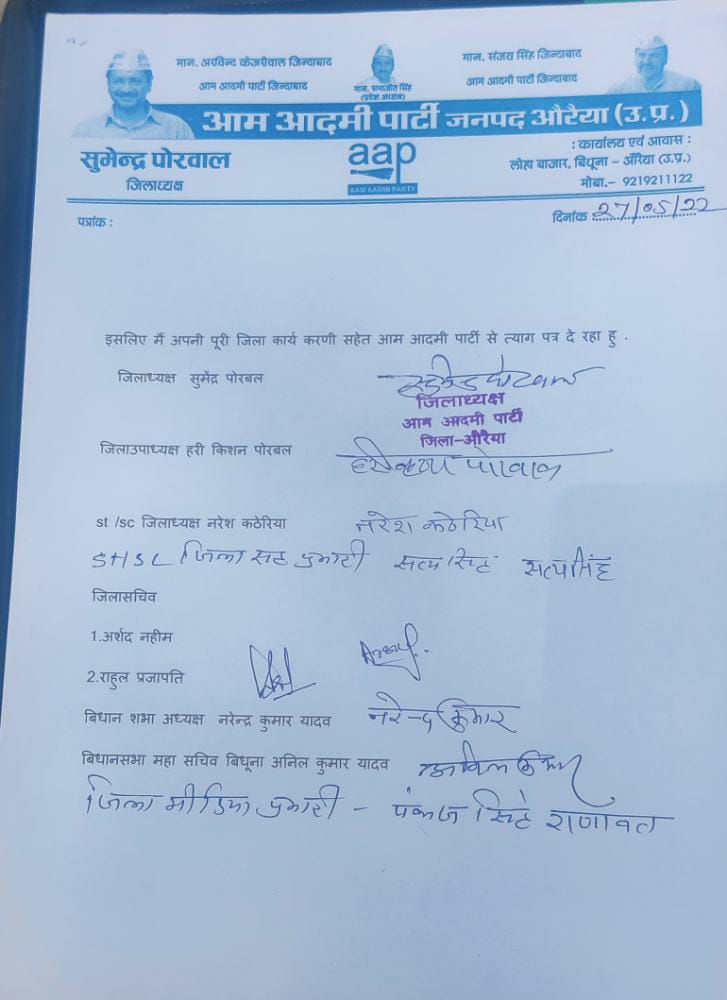 मान. अरविन्द केजरीवाल जिन्दाबाद
आम आदमी पार्टी जिन्दाबाद
मान. सभाजीत सिंह
(प्रदेश अध्यक्ष)
मान. संजय सिंह जिन्दाबाद
आम आदमी पार्टी जिन्दाबाद
आम आदमी पार्टी जनपद औरैया (उ.प्र.)
सुमेन्द्र पोरवाल
जिलाध्यक्ष
aap
AAM AADMI PARTY
: कार्यालय एवं आवास :
लोहा बाजार, बिधूना - औरैया (उ.प्र.)
मोबा.- 9219211122
पत्रांक :
दिनांक 27/05/22
इसलिए मैं अपनी पूरी जिला कार्य करणी सहेत आम आदमी पार्टी से त्याग पत्र दे रहा हु .
जिलाध्यक्ष सुमेंद्र पोरबल
जिलाध्यक्ष
आम आदमी पार्टी
जिला-औरैया
जिलाउपाध्यक्ष हरी किशन पोरबल
पोरवाल
st /sc जिलाध्यक्ष नरेश कठेरिया नरेश कठेरिया
ST/SC जिला सह प्रभारी सत्य सिंह सत्यसिंह
जिलासचिव
1.अर्शद नहीम
2.राहुल प्रजापति
बिधान शभा अध्यक्ष नरेन्द्र कुमार यादव नरेन्द्र कुमार
बिधानसभा महा सचिव बिधूना अनिल कुमार यादव
जिला मीडिया प्रभारी - पंकज सिंह राणावत